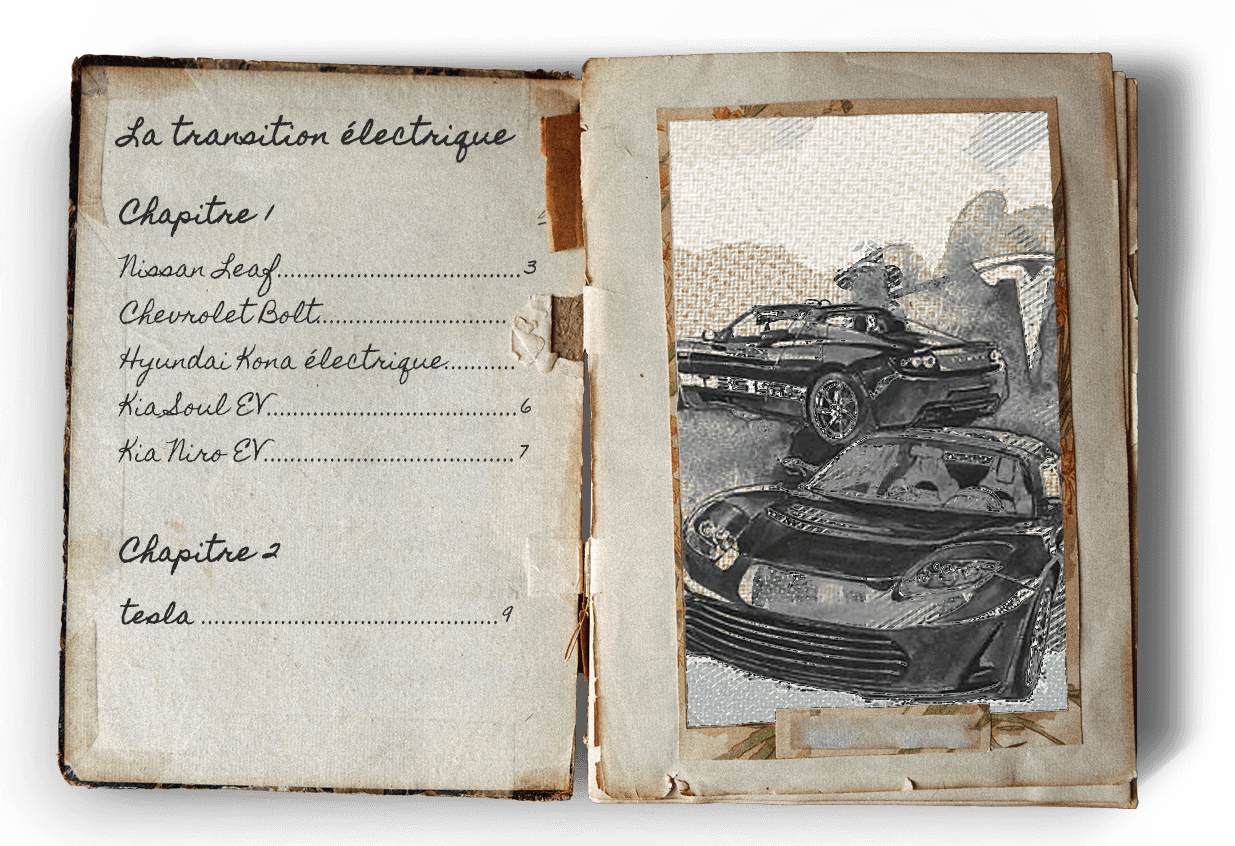 La transition électrique
Chapitre 1
Nissan Leaf..............................................3
Chevrolet Bolt....................................
Hyundai Kona électrique............
Kia Soul EV...............................................6
Kia Niro EV...............................................7
Chapitre 2
tesla ........................................................9